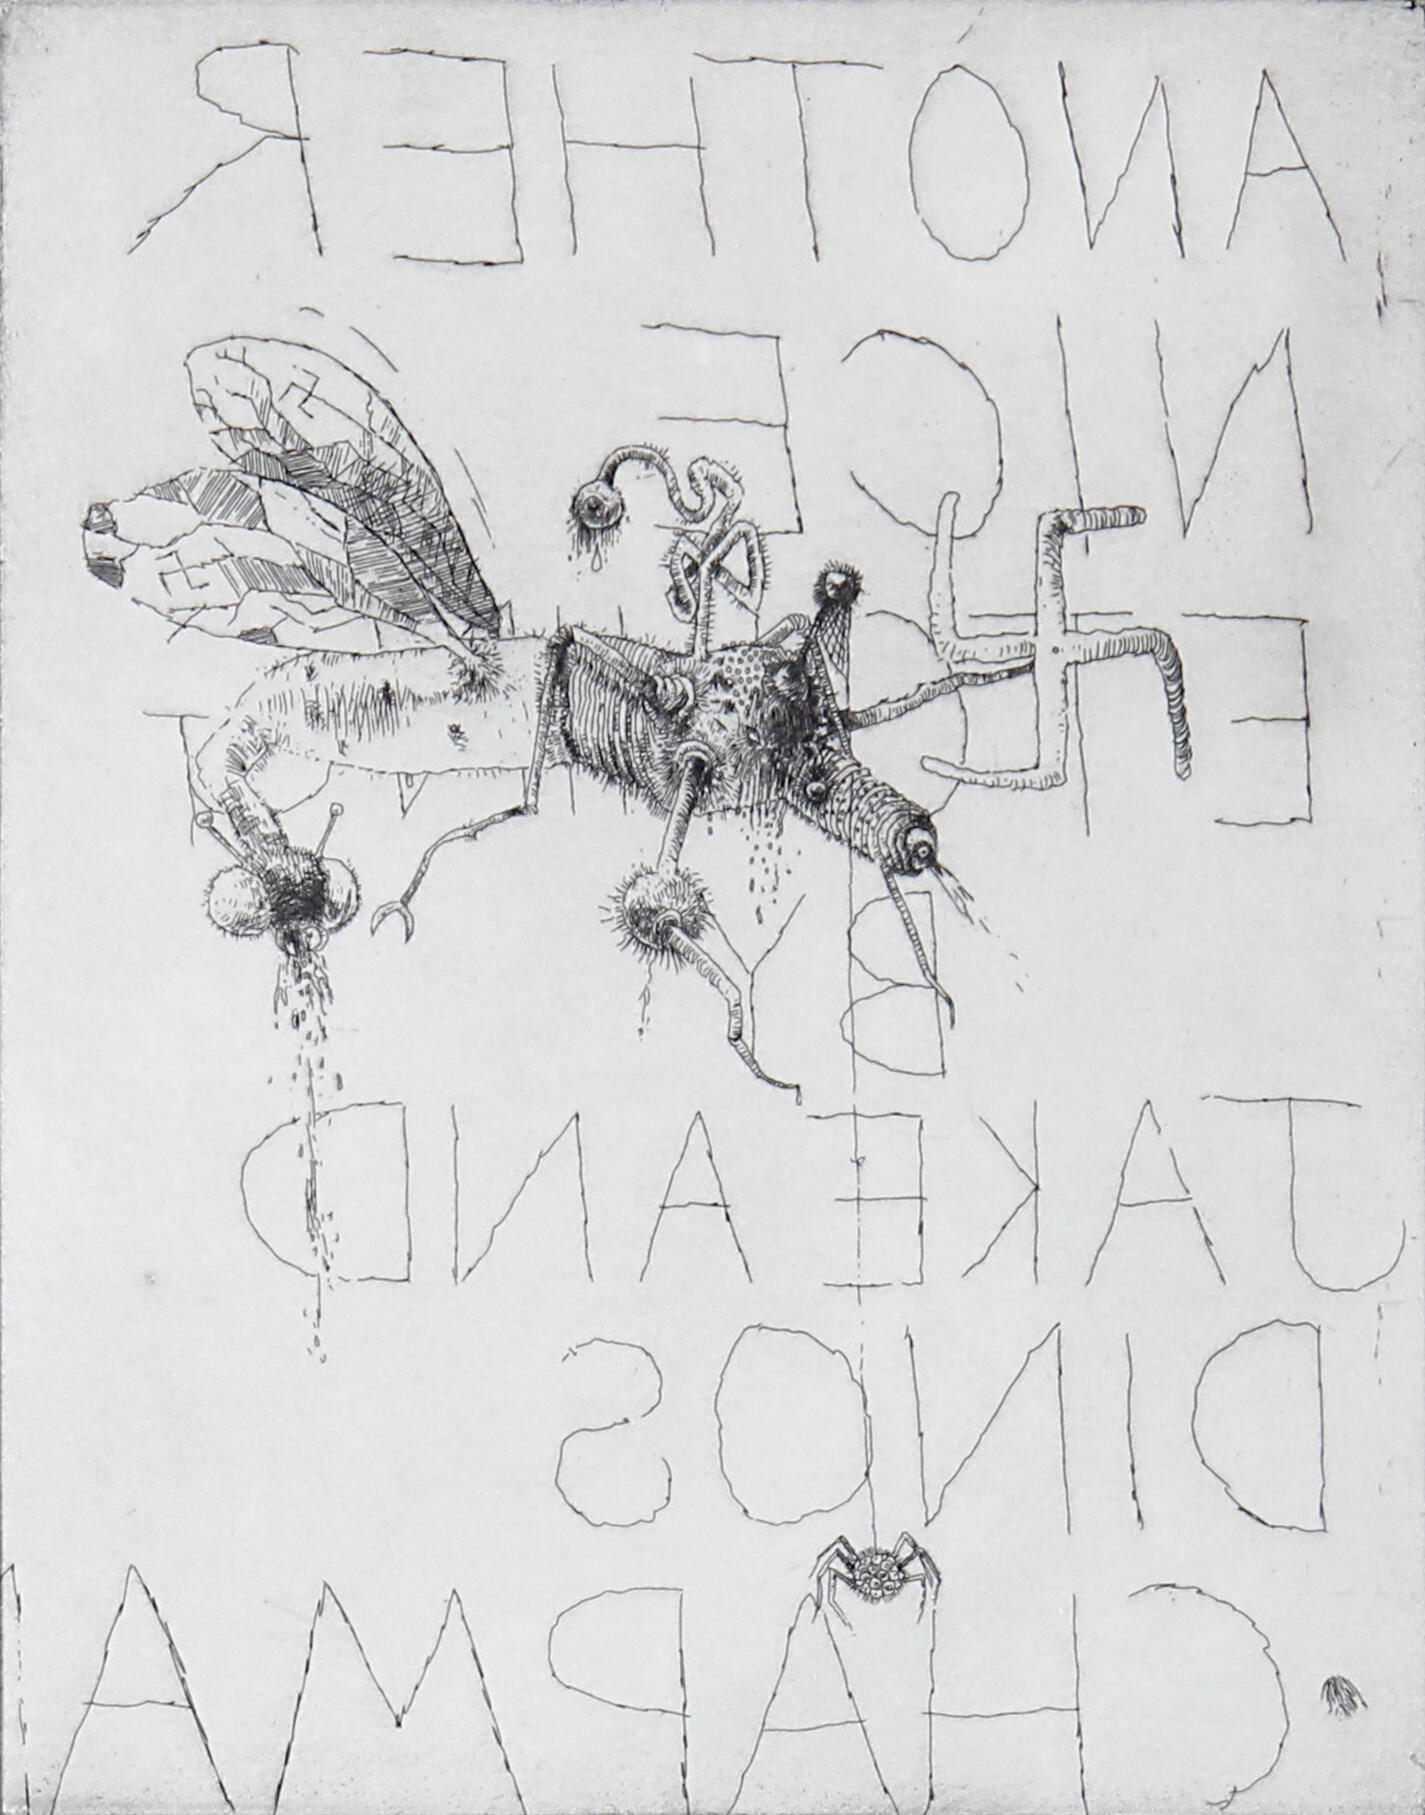 ANOTHER
NICE
ETCHING
BY
JAKE AND
DINOS
CHAPMAN